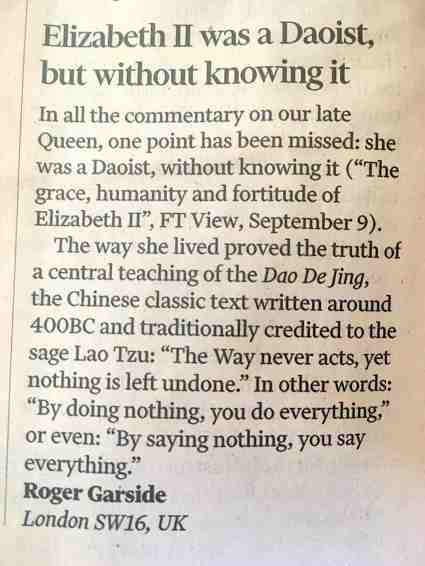 Elizabeth II was a Daoist,
but without knowing it
In all the commentary on our late
Queen, one point has been missed: she
was a Daoist, without knowing it (“The
grace, humanity and fortitude of
Elizabeth II”, FT View, September 9).
The way she lived proved the truth of
a central teaching of the Dao De Jing,
the Chinese classic text written around
400BC and traditionally credited to the
sage Lao Tzu: “The Way never acts, yet
nothing is left undone.” In other words:
“By doing nothing, you do everything,”
or even: “By saying nothing, you say
everything.”
Roger Garside
London SW16, UK